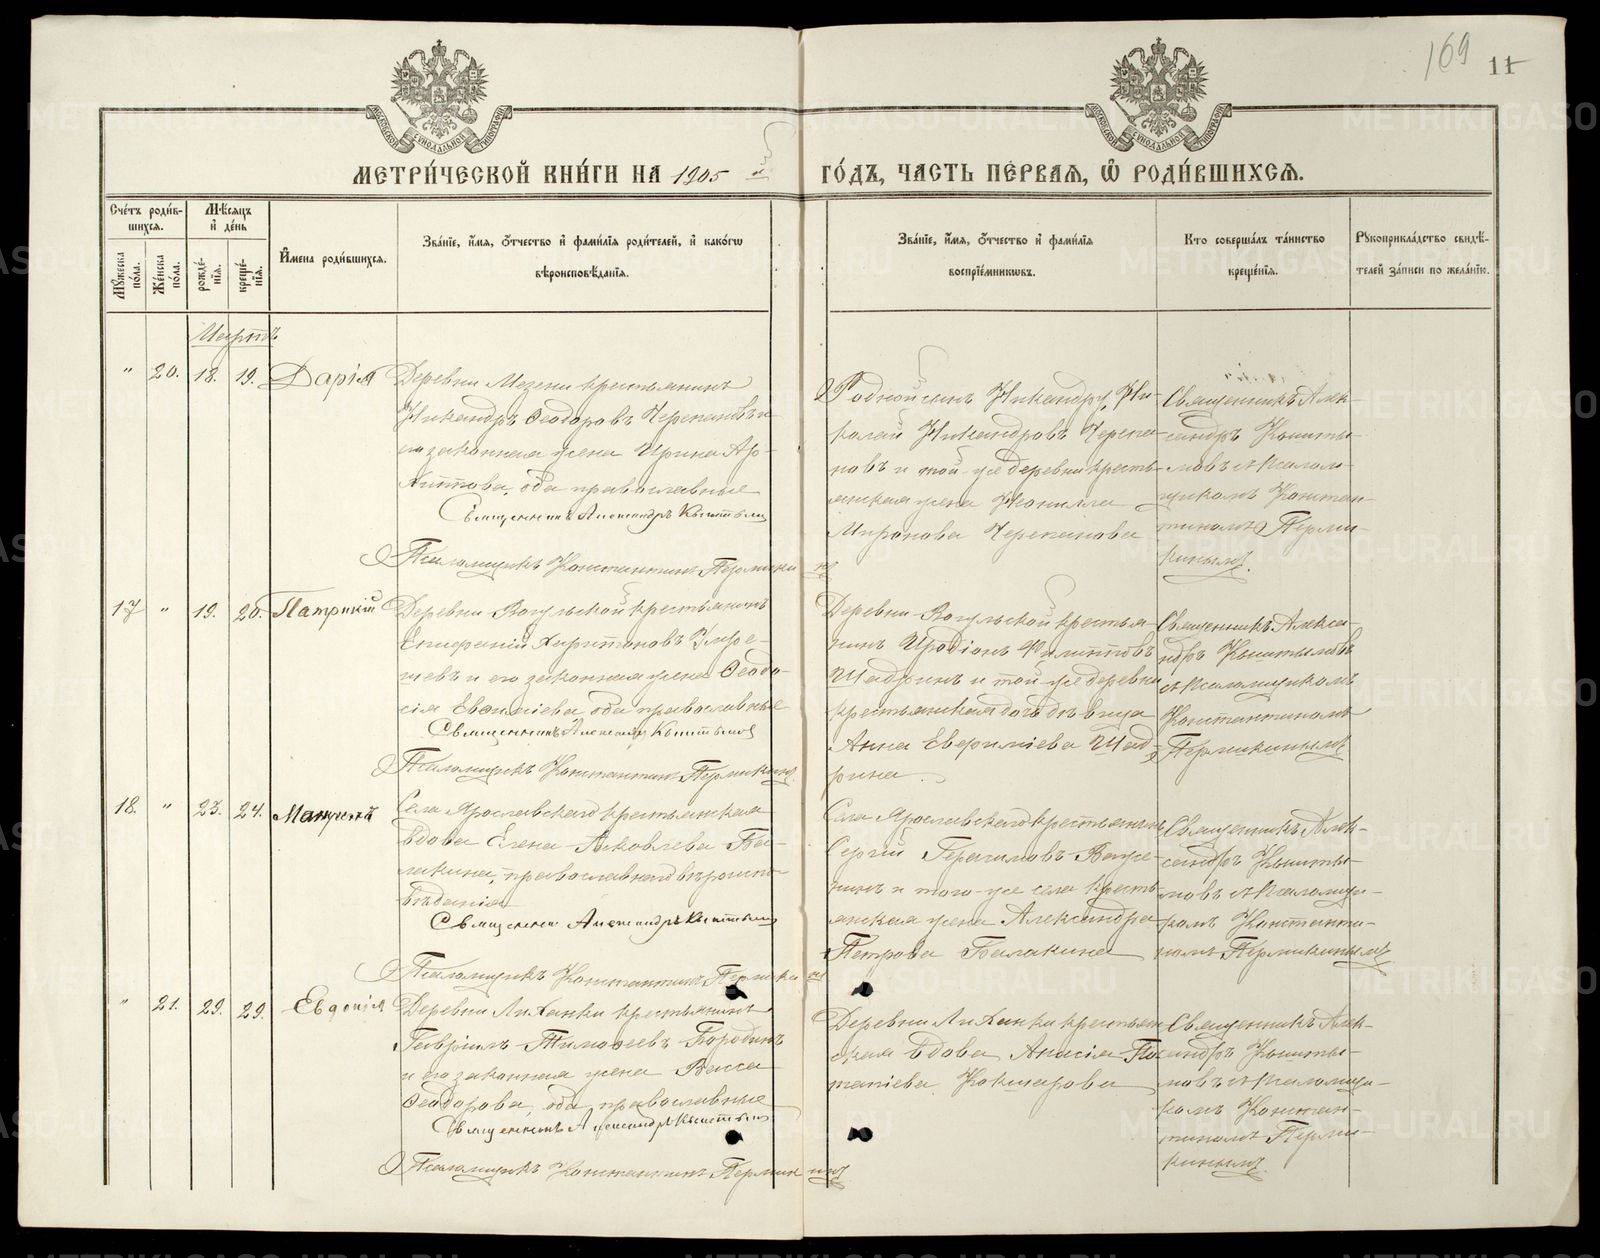 169 11
МЕТРИ́ЧЕСКОЙ КНИ́ГИ НА 1905 й ГО́ДЪ, ЧАСТЬ ПЕ́РВАЯ, Ѽ РОДИ́ВШИХСѦ.
Сче́тъ роди́в-
шихсѧ.
Мѣ́сѧцъ
и҆ де́нь
И҆мена роди́вшихсѧ.
Зва́нїе, и҆́мѧ, ѻ҆́тчество и҆ фами́лїѧ роди́телей, и҆ како́гѡ
вѣроисповѣ́данїѧ.
Зва́нїе, и҆́мѧ, ѻ҆́тчество и҆ фами́лїѧ
воспрїе́мникѡвъ.
Кто соверша́лъ та́инство
креще́нїѧ.
Рꙋкоприкла́дство свидѣ́-
телей за́писи по жела́нїю.
Мꙋ́жеска
по́ла.
Же́нска
по́ла.
рожде́-
нїѧ.
креще́-
нїѧ.
Мартъ
" 20. 18. 19. Дарія
Деревни Мезени крестьянинъ
Никандръ Ѳеодоровъ Черепановъ и
его законная жена Ирина Ар-
хипова, оба православные
Священникъ Александръ Кыштымов
Псаломщикъ Константинъ Пермикинъ
Родной сынъ Никандру, Ни-
колай Никандровъ Черепа-
новъ и той-же деревни кресть-
янская жена Неонилла
Миронова Черепанова
Священникъ Алек-
сандръ Кышты-
мовъ съ псалом-
щикомъ Констан-
тиномъ Перми-
кинымъ.
17 " 19. 20. Патрикій
Деревни Вогульской крестьянинъ
Харитоновъ
и его законная жена Ѳеодо-
сія Евѳиміева оба православные
Священникъ Александр Кыштымов
Псаломщикъ Константинъ Пермикинъ
Деревни Вогульской крестья-
нинъ Иродіонъ Филипповъ
Шадринъ и той же деревни
крестьянская дочь дѣвица
Анна Евфиміева Шад-
рина.
Священникъ Алекса-
ндръ Кыштымовъ
съ псаломщикомъ
Константиномъ
Пермикинымъ
18. " 23. 24. Маркелъ
Села Ярославскаго крестьянская
вдова Елена Яковлева Ба-
лакина, православнаго вѣроиспо-
вѣданія
Священник Александръ Кыштымов
Псаломщикъ Константинъ Пермикинъ
Села Ярославскаго крестьянинъ
Сергій Герасимовъ Важе-
нинъ и того-же села кресть-
янская жена Александра
Петрова Балакина
Священникъ Алек-
сандръ Кышты-
мовъ съ псаломщи-
комъ Константи-
номъ Пермикинымъ
" 21. 29. 29. Евдокія
Деревни Лиханки крестьянинъ
Гавріилъ Тимоѳеевъ Бородинъ
и его законная жена Васса
Ѳеодорова, оба православные
Священникъ Александръ Кыштымов
Псаломщикъ Константинъ Пермикинъ
Деревни Лиханки крестьян-
ская вдова Анисія По-
тапіева Кокшарова
Священникъ Алек-
сандръ Кышты-
мовъ съ псаломщи-
комъ Констан-
тиномъ Перми-
кинымъ.